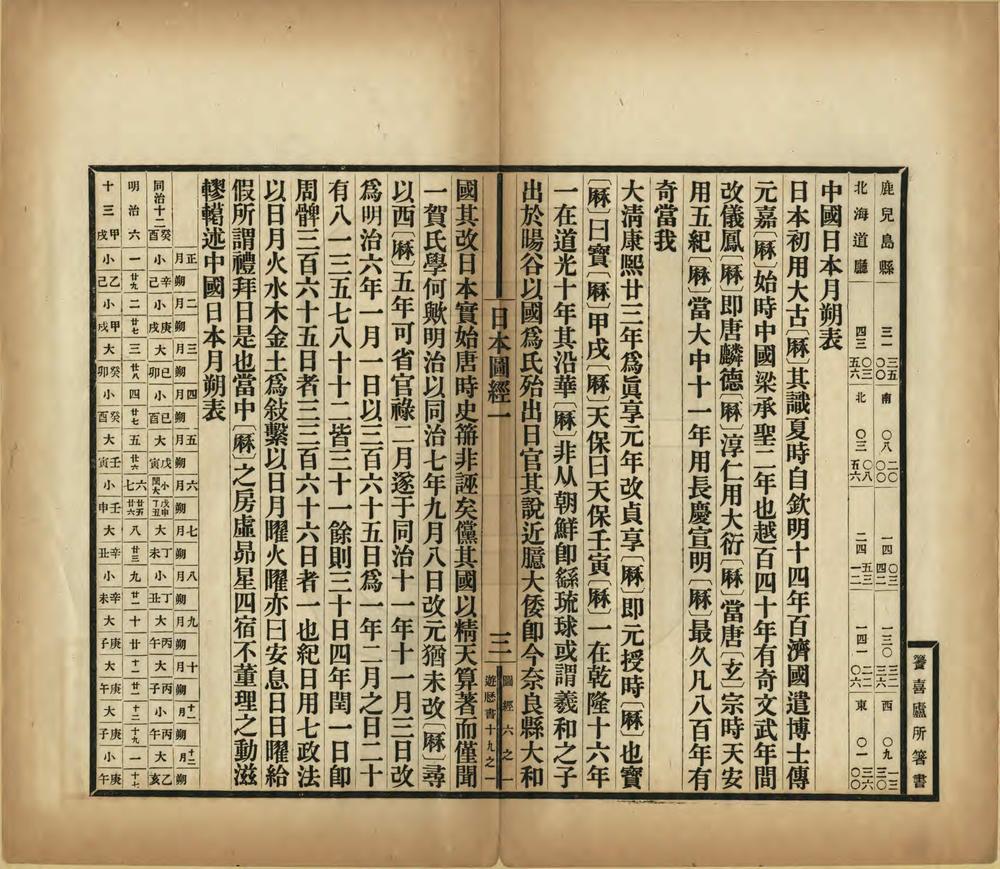 籑喜廬所箸書
鹿兒島縣 三一 三五 〇〇 南 〇八 二〇 〇〇 一四 〇三 四二 一三〇 三二 三六 西 〇九 一三 三〇
北海道廳 四三 〇〇 五六 北 〇三 〇八 五六 二四 五三 一二 一四一 二二 〇六 東 〇一 三六 〇〇
中國日本月朔表
日本初用大古〔厤〕其識夏時自欽明十四年百濟國遣博士傳
元嘉〔厤〕始時中國梁承聖二年也越百四十年有奇文武年間
改儀鳳〔厤〕即唐麟德〔厤〕淳仁用大衍〔厤〕當唐〔玄〕宗時天安
用五紀〔厤〕當大中十一年用長慶宣明〔厤〕最久凡八百年有
奇當我
大淸康熙廿三年爲眞享元年改貞享〔厤〕即元授時〔厤〕也寶
〔厤〕曰寶〔厤〕甲戌〔厤〕天保曰天保壬寅〔厤〕一在乾隆十六年
一在道光十年其沿華〔厤〕非从朝鮮卽繇琉球或謂羲和之子
出於暘谷以國爲氏殆出日官其說近臆大倭卽今奈良縣大和
日本圖經一 三 圖經六之一 遊歷書十九之一
國其改日本實始唐時史箾非誣矣儻其國以精天算著而僅聞
一賀氏學何歟明治以同治七年九月八日改元猶未改〔厤〕尋
以西〔厤〕五年可省官祿二月遂于同治十一年十一月三日改
爲明治六年一月一日以三百六十五日爲一年二月之日二十
有八一三五七八十十二皆三十一餘則三十日四年閏一日卽
周髀三百六十五日者三三百六十六日者一也紀日用七政法
以日月火水木金土爲敍繫以日月曜火曜亦曰安息日日曜給
假所謂禮拜日是也當中〔厤〕之房虛昴星四宿不董理之動滋
轇轕述中國日本月朔表
正月朔 二月朔 三月朔 四月朔 五月朔 六月朔 七月朔 八月朔 九月朔 十月朔 十一月朔 十二月朔
同治十二癸酉 小辛己 小庚戌 大己卯 小己酉 大戊寅 小戊申 閏大丁丑 大丁未 小丁丑 大丙午 大丙子 小丙午 大乙亥
明治六 一廿九 二廿七 三廿八 四廿七 五廿六 六廿五 七廿六 八廿三 九廿一 十廿 十一廿 十二十九 一十七
十三甲戌 小乙己 小甲戌 大癸卯 小癸酉 大壬寅 小壬申 大辛丑 小辛未 大庚子 大庚午 大庚子 小庚午